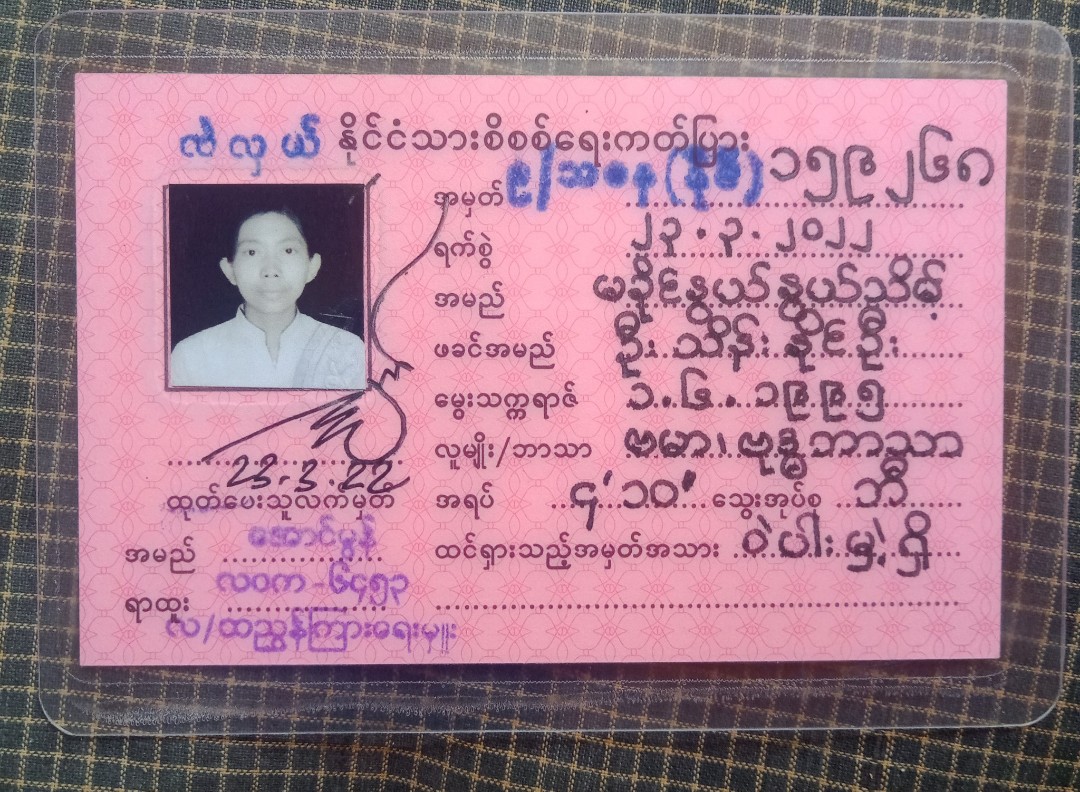 ကဲလှယ် နိုင်ငံသားစိစစ်ရေးကတ်ပြား
အမှတ် ၉/အမန(နိုင်) ၁၅၉၂၆၈
ရက်စွဲ ၂၃.၃.၂၀၂၂
အမည် မခိုင်နွယ်နွယ်သိမ့်
ဖခင်အမည် ဦးသိန်းနိုင်ဦး
မွေးသက္ကရာဇ် ၁.၆.၁၉၉၅
လူမျိုး/ဘာသာ ဗမာ၊ ဗုဒ္ဓဘာသာ
အရပ် ၄'၁၀" သွေးအုပ်စု ဘီ
ထင်ရှားသည့်အမှတ်အသား ဝဲပါးမှဲ့ရှိ
23.3.22
ထုတ်ပေးသူလက်မှတ်
အမည် အောင်မွန်
လဝက-၆၄၅၃
ရာထူး လ/ထညွှန်ကြားရေးမှူး